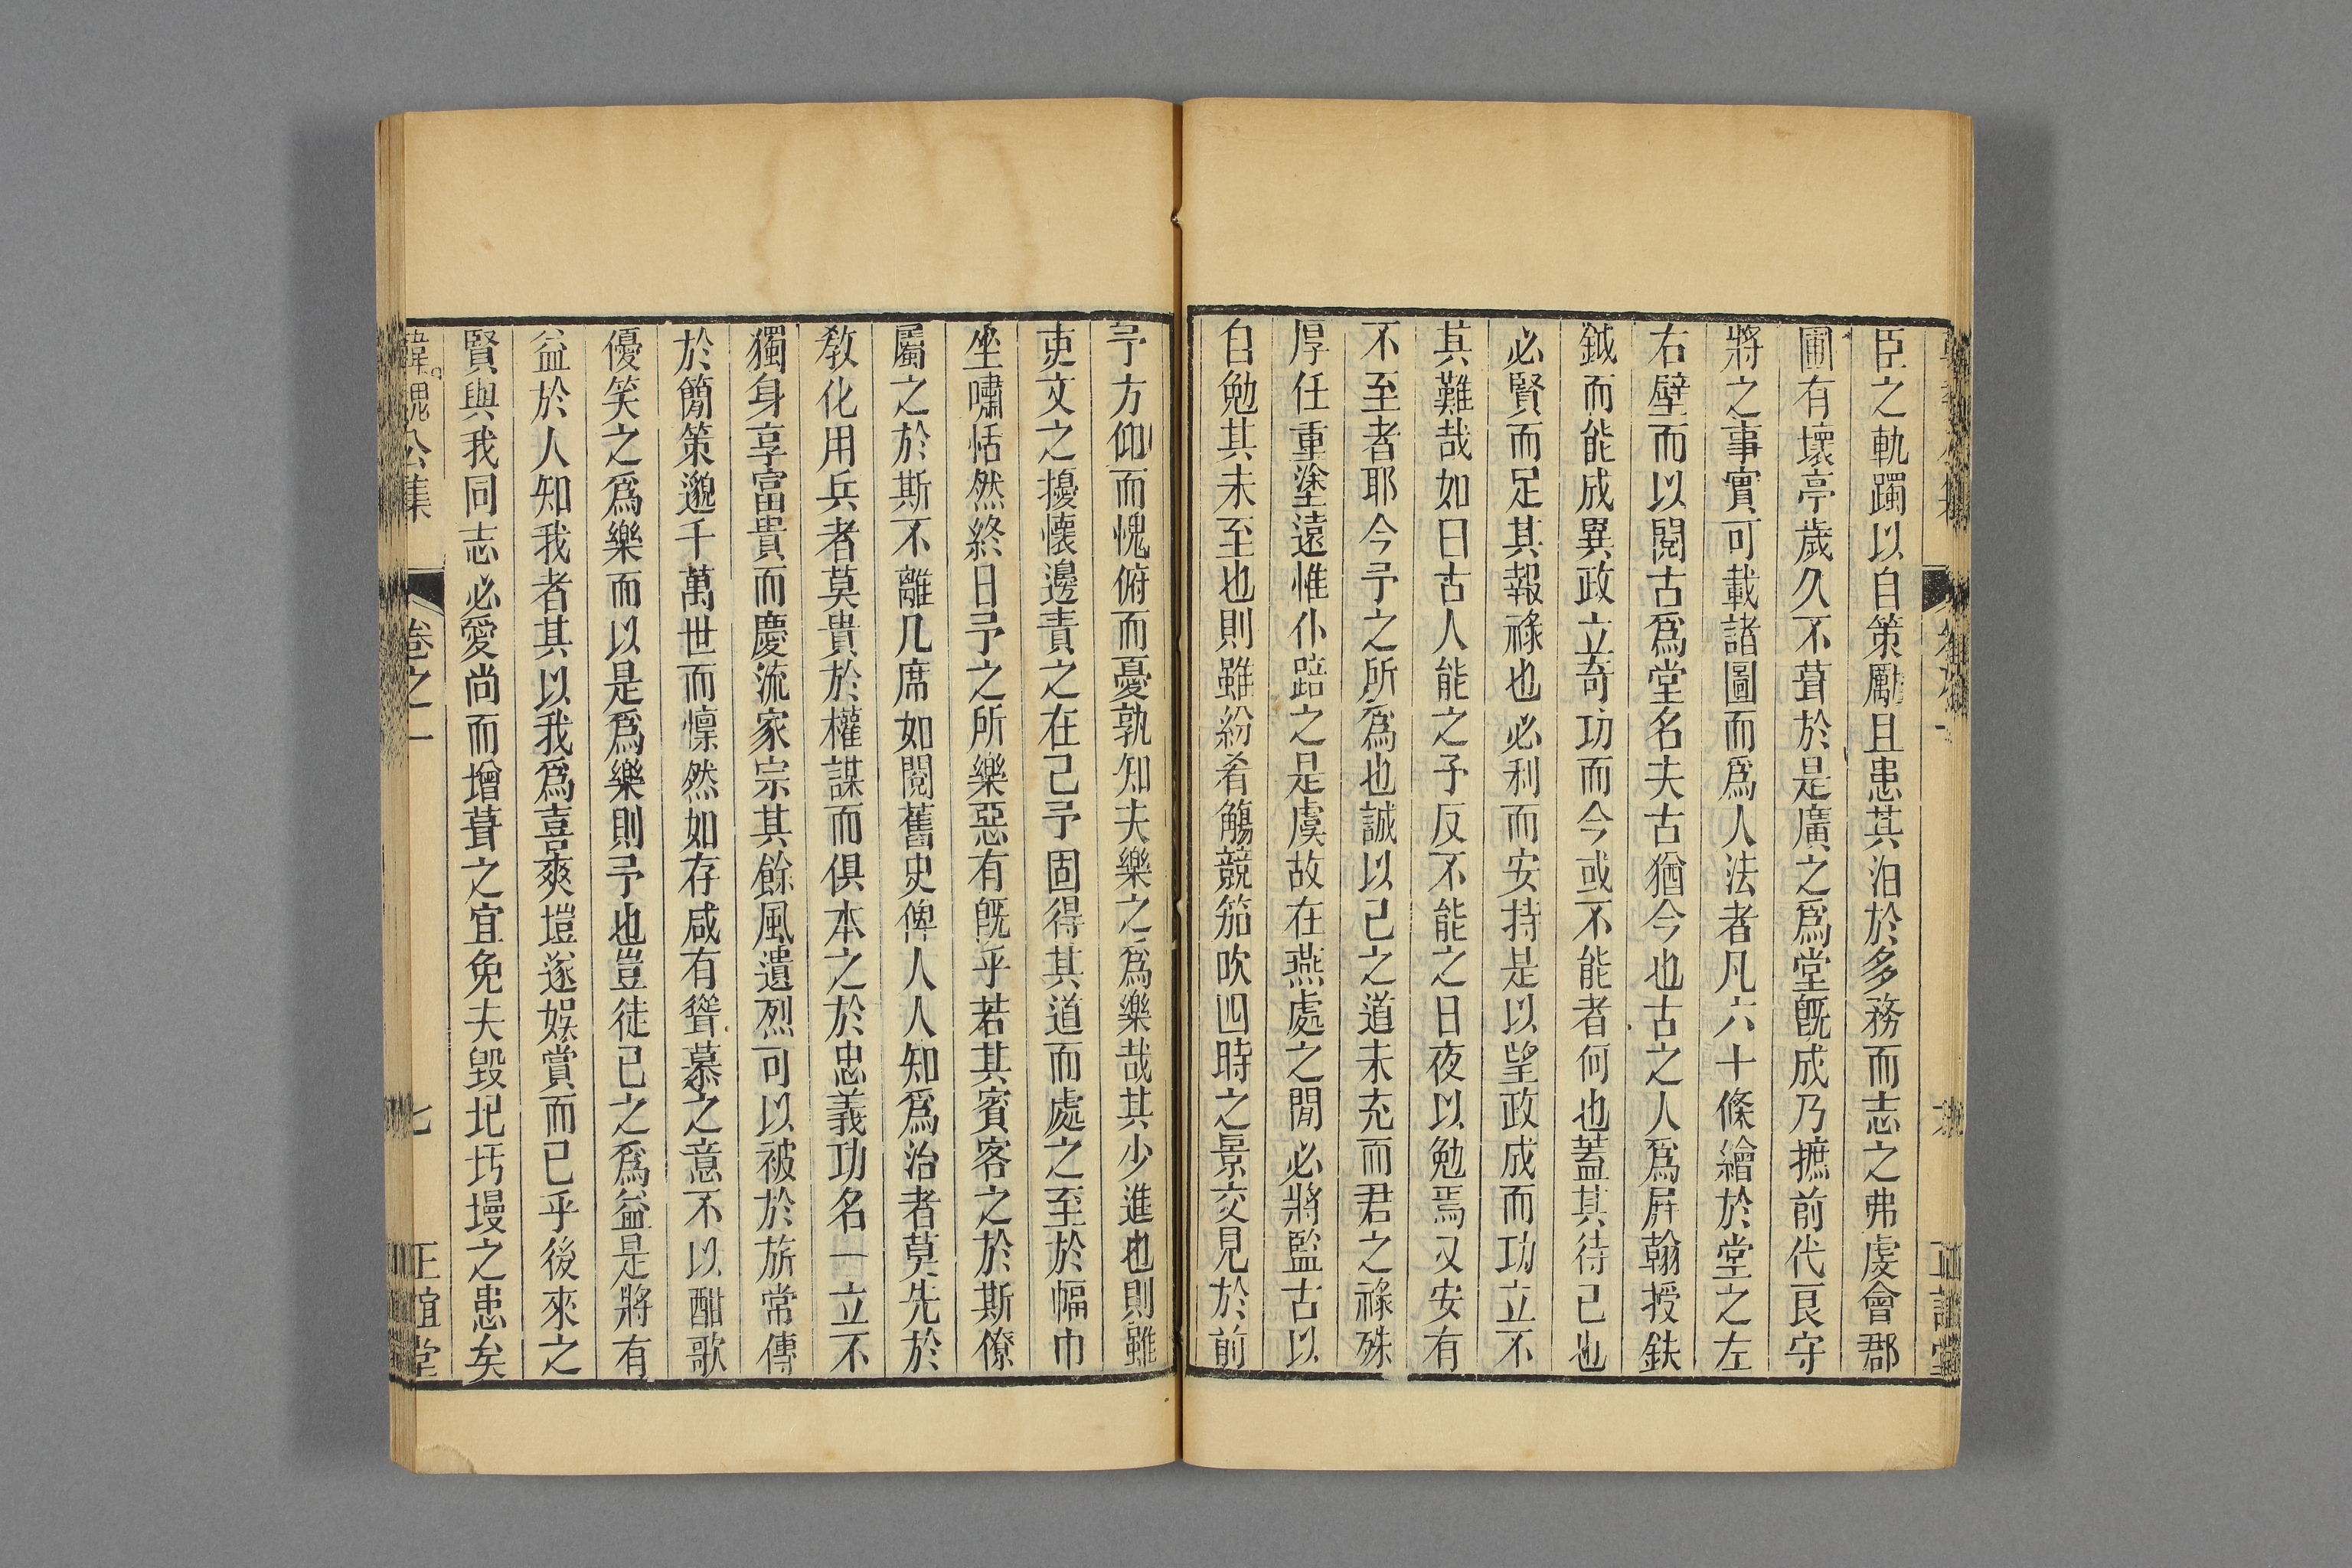 臣之軌躅以自策勵且患其汨於多務而志之弗虔會郡
圃有壞亭歲久不葺於是廣之爲堂旣成乃摭前代良守
將之事實可載諸圖而爲人法者凡六十條繪於堂之左
右壁而以閱古爲堂名夫古猶今也古之人爲屛翰授鈇
鉞而能成異政立奇功而今或不能者何也蓋其待己也
必賢而足其報祿也必利而安持是以望政成而功立不
其難哉如曰古人能之予反不能之日夜以勉焉又安有
不至者耶今予之所爲也誠以己之道未充而君之祿殊
厚任重塗遠惟仆踣之是虞故在燕處之閒必將監古以
自勉其未至也則雖紛肴觴競笳吹四時之景交見於前
予方仰而愧俯而憂孰知夫樂之爲樂哉其少進也則雖
吏文之擾懷邊責之在己予固得其道而處之至於幅巾
坐嘯恬然終日予之所樂惡有旣乎若其賓客之於斯僚
屬之於斯不離几席如閱舊史俾人人知爲治者莫先於
敎化用兵者莫貴於權謀而俱本之於忠義功名一立不
獨身享富貴而慶流家宗其餘風遺烈可以被於旂常傳
於簡策邈千萬世而懍然如存咸有聳慕之意不以酣歌
優笑之爲樂而以是爲樂則予也豈徒己之爲益是將有
益於人知我者其以我爲喜爽塏遂娛賞而已乎後來之
賢與我同志必愛尚而增葺之宜免夫毀圮圬墁之患矣
韓魏公集
卷之一
七
正誼堂